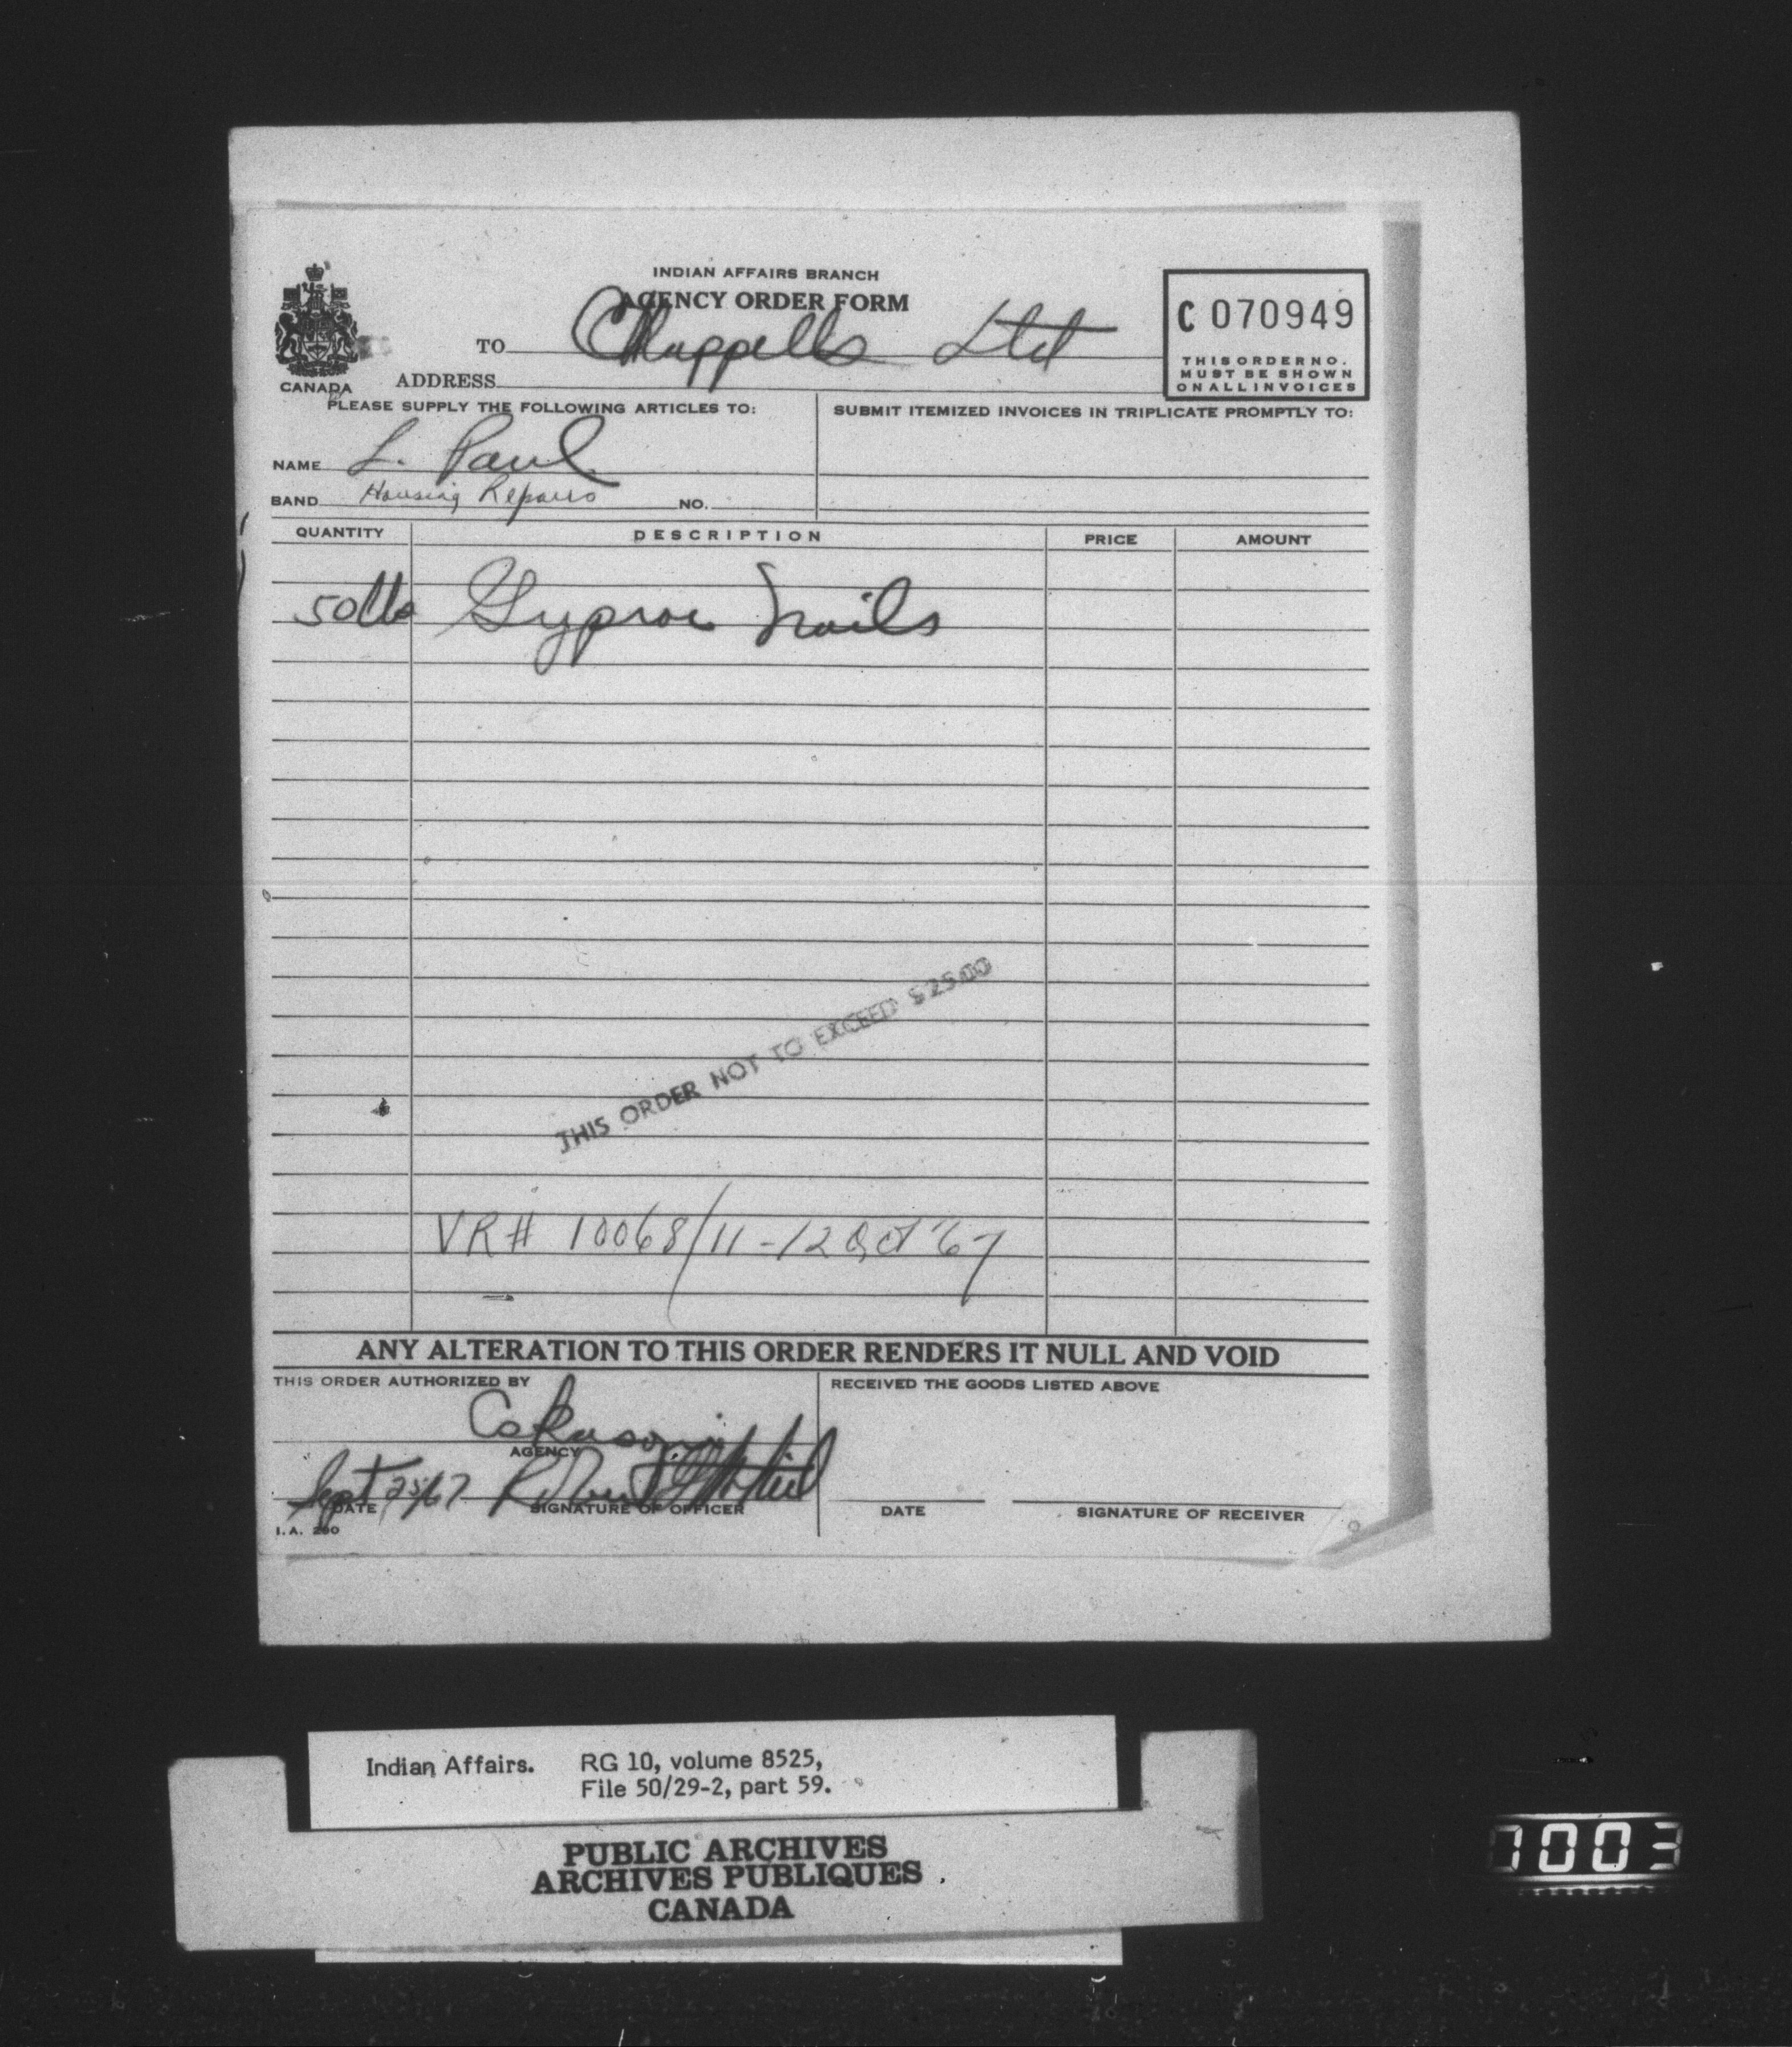 INDIAN AFFAIRS BRANCH
AGENCY ORDER FORM
C 070949
THIS ORDER NO.
MUST BE SHOWN
ON ALL INVOICES
CANADA
TO Chappells Ltd
ADDRESS
PLEASE SUPPLY THE FOLLOWING ARTICLES TO:
SUBMIT ITEMIZED INVOICES IN TRIPLICATE PROMPTLY TO:
NAME L. Paul
BAND Housing Repairs NO.
QUANTITY DESCRIPTION PRICE AMOUNT
50 lbs Gyproc Nails
THIS ORDER NOT TO EXCEED $25.00
VR# 10068/11-12 Oct '67
ANY ALTERATION TO THIS ORDER RENDERS IT NULL AND VOID
THIS ORDER AUTHORIZED BY
RECEIVED THE GOODS LISTED ABOVE
Eskasoni
AGENCY
Sept 25/67
DATE SIGNATURE OF OFFICER
DATE SIGNATURE OF RECEIVER
I.A. 290
Indian Affairs. RG 10, volume 8525,
File 50/29-2, part 59.
PUBLIC ARCHIVES
ARCHIVES PUBLIQUES
CANADA
1003